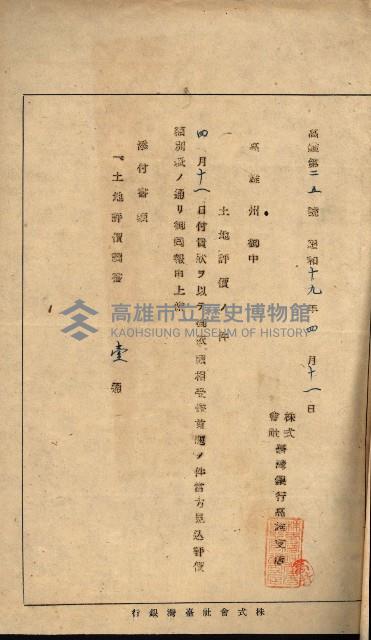 高雄第二五號 昭和十九年四月十一日
株式會社臺灣銀行高雄支店
高雄州御中
土地評價ノ件
四月十一日付貴狀ヲ以テ御依頼相受候首題ノ件當方見込評價
額別紙ノ通リ御回報申上候
添付書類
一、土地評價調書 壹通
株式會社臺灣銀行
高雄市立歷史博物館
KAOHSIUNG MUSEUM OF HISTORY